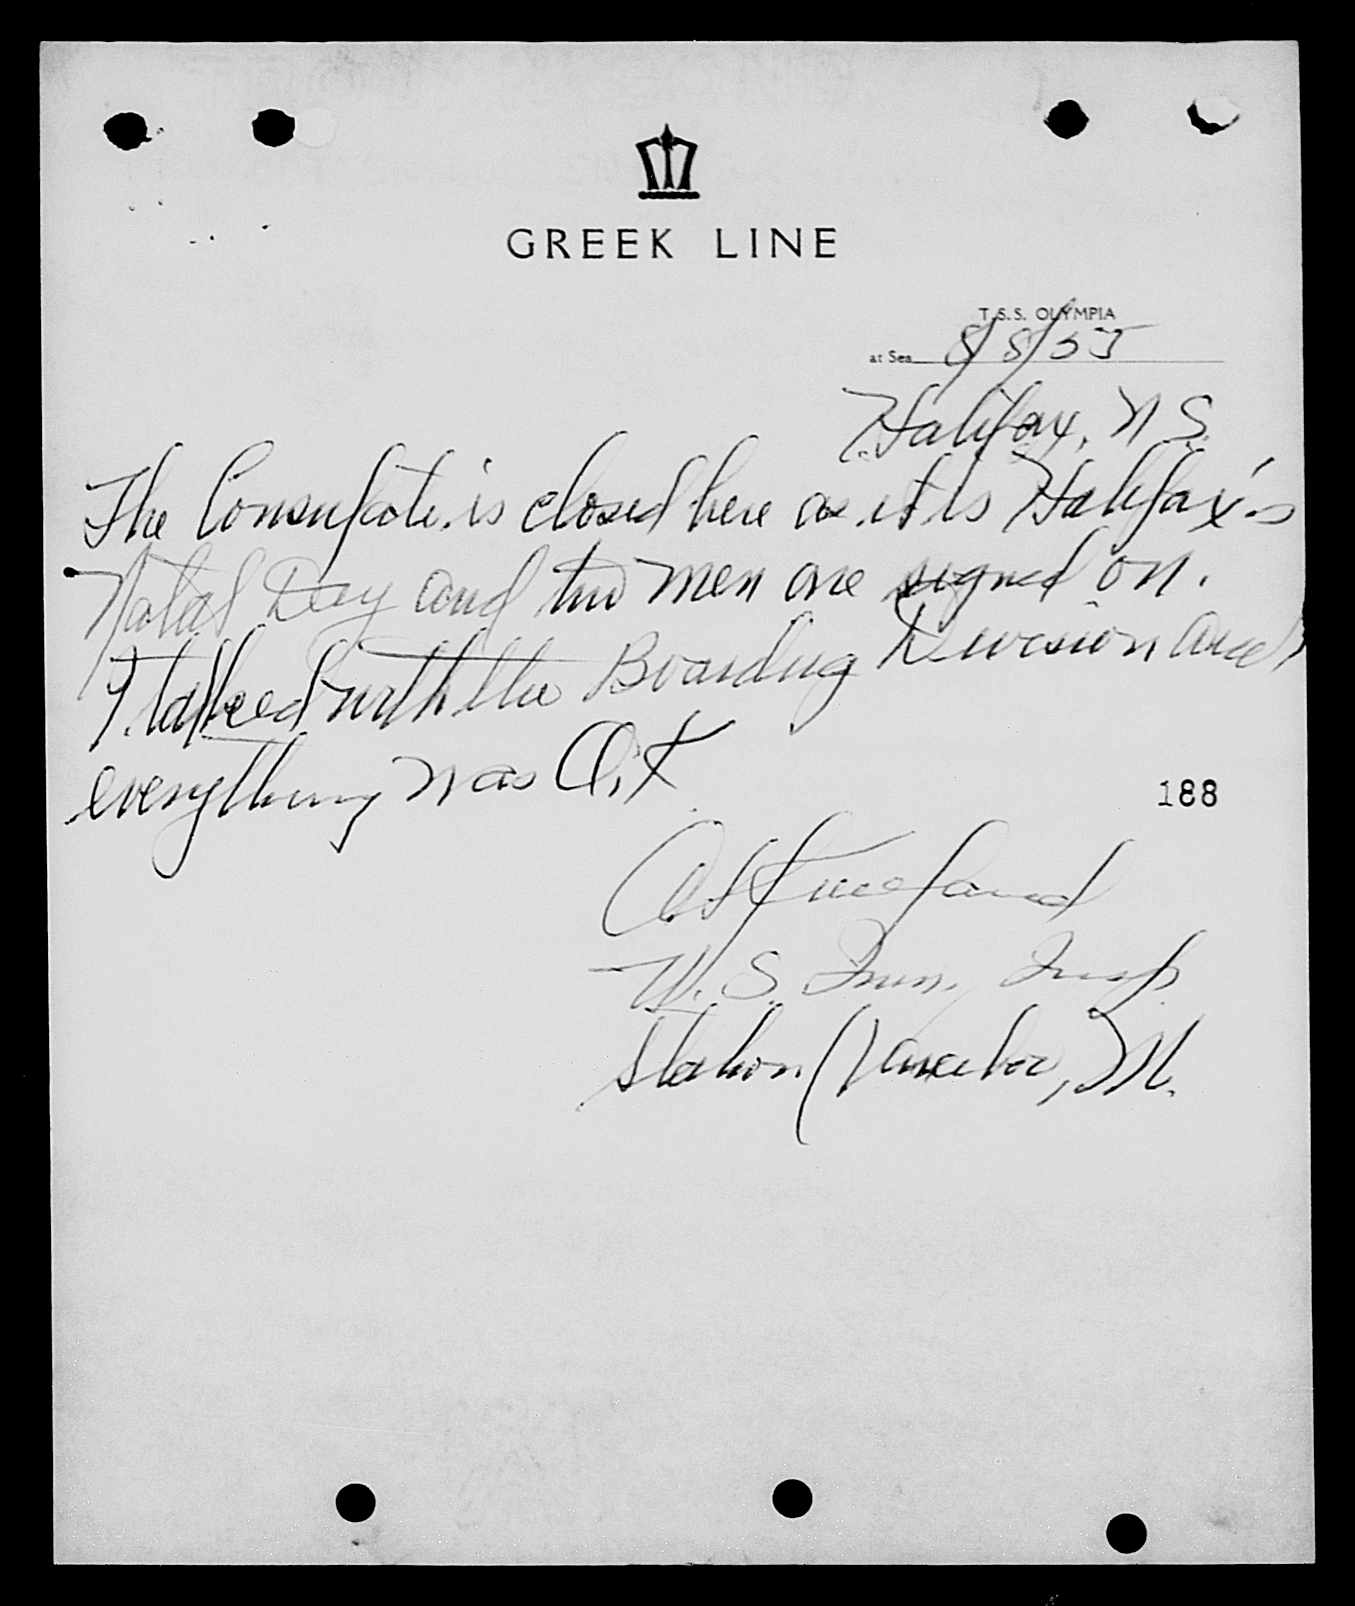 GREEK LINE
T.S.S. OLYMPIA
at Sea 8/8/55
Halifax, N S.
The Consulate is closed here as it is Halifax's
Natal Day and two men are signed on.
I talked with the Boarding Division and
everything was O.K
188
U. S. Imm. Insp
Station Vanceboro, M.